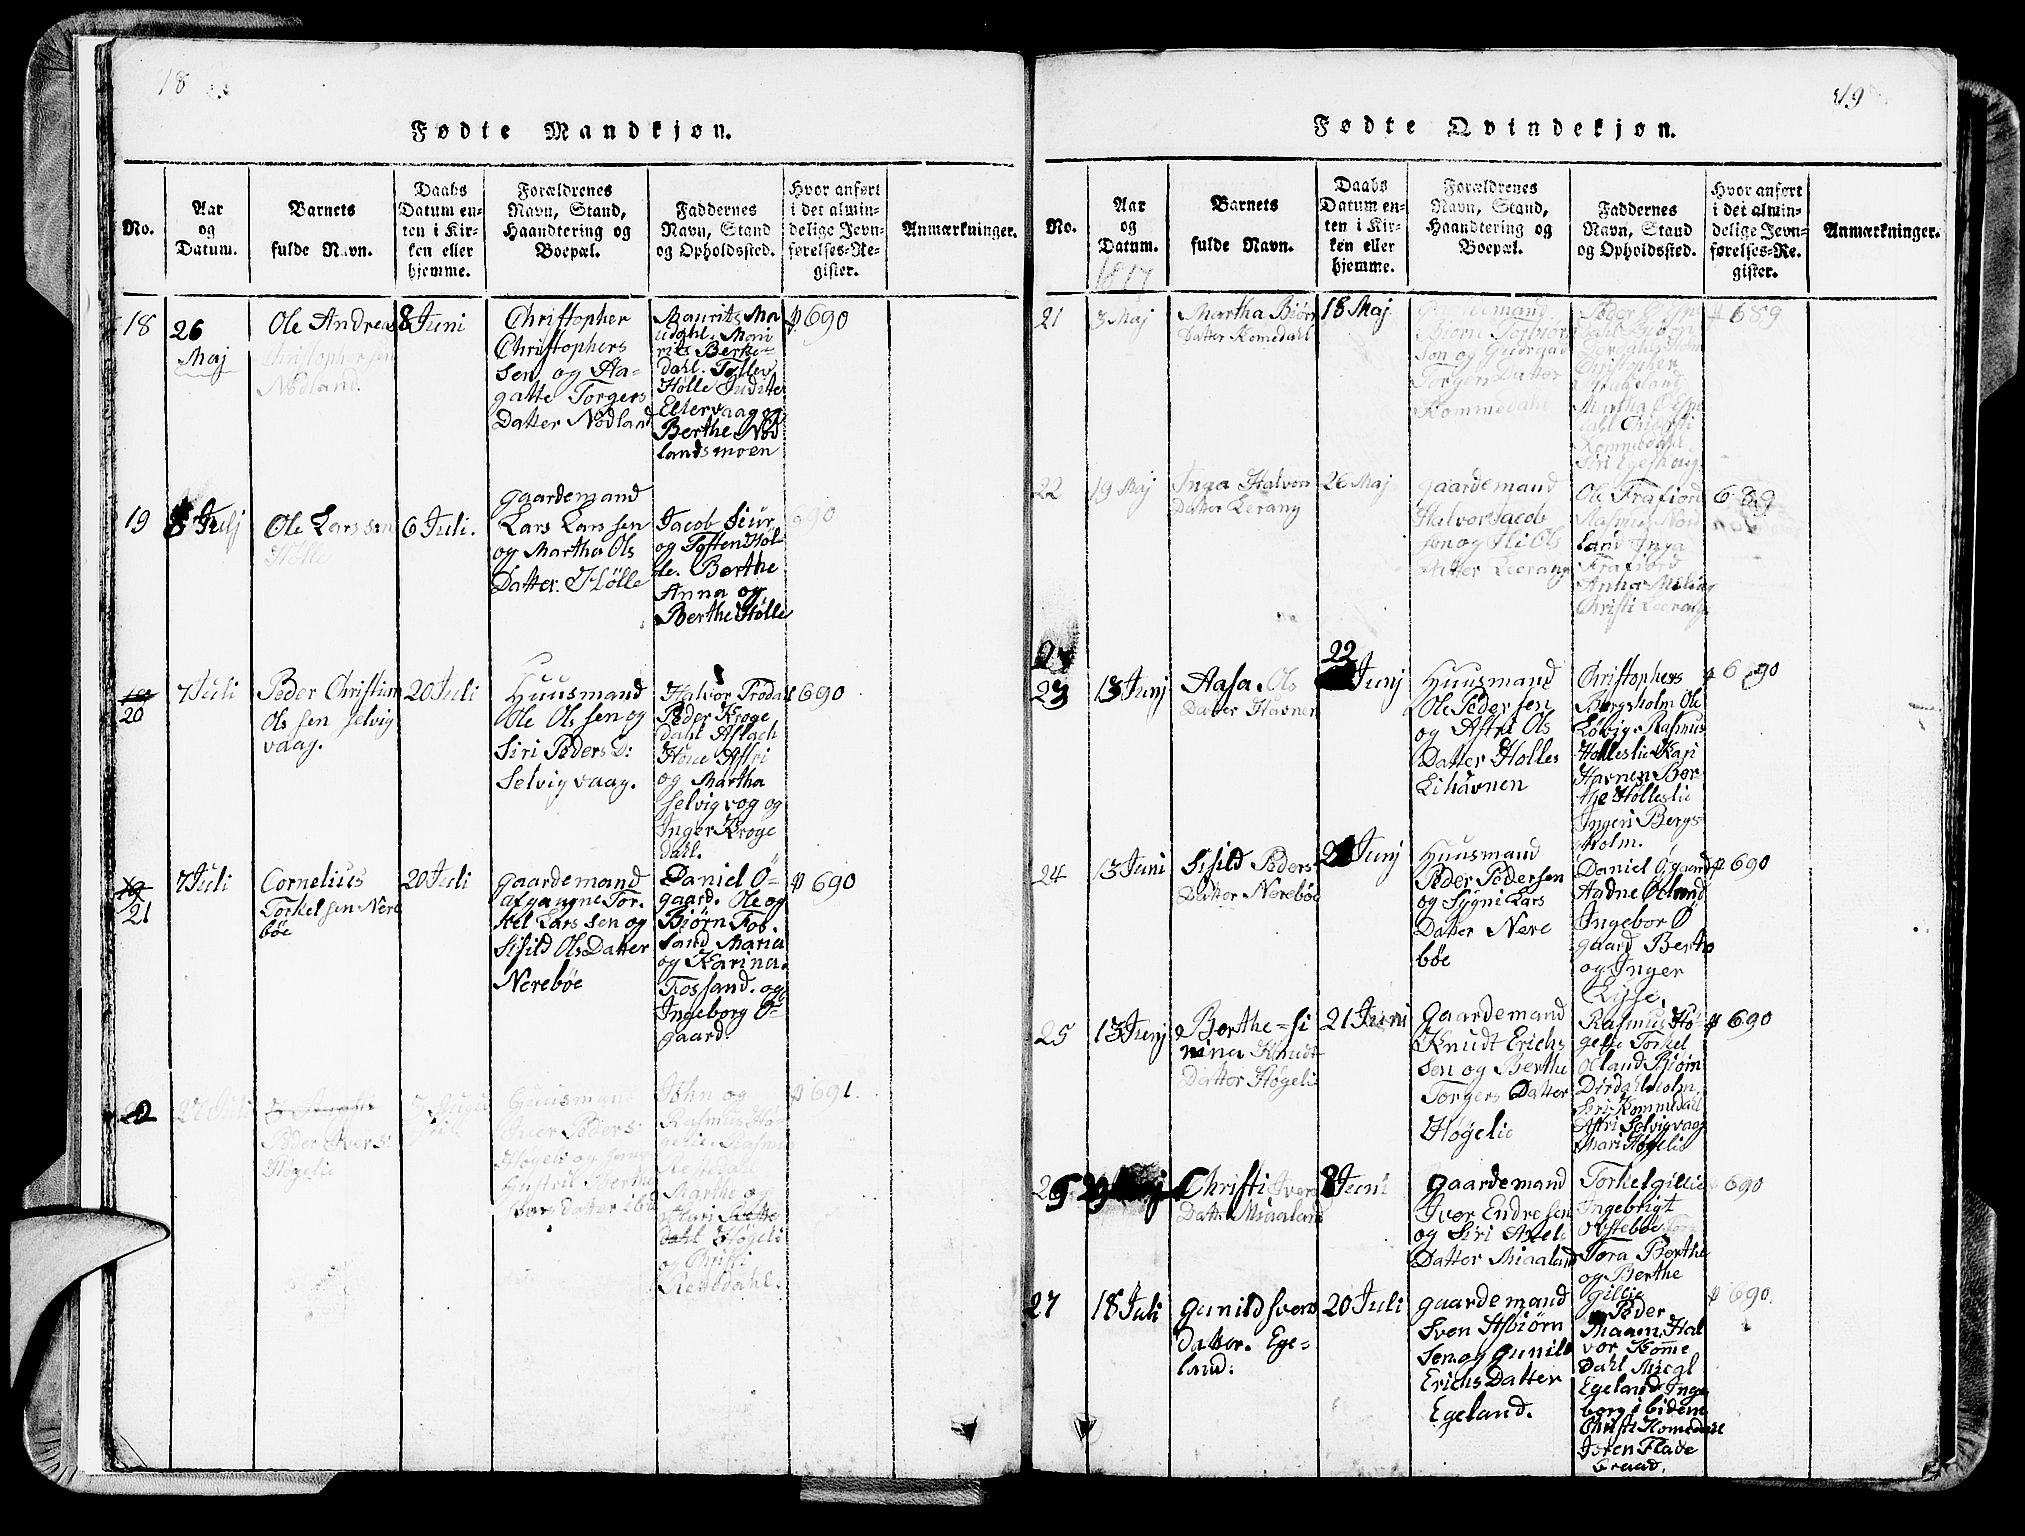 18
Fødte Mandkjøn.
No.
Aar
og
Datum.
Barnets
fulde Navn.
Daabs
Datum en-
ten i Kir-
ken eller
hjemme.
Forældrenes
Navn, Stand,
Haandtering og
Boepæl.
Faddernes
Navn, Stand
og Opholdssted.
Hvor anført
i det almin-
delige Jevn-
førelses-Re-
gister.
Anmærkninger.
18
26
Maj
Ole Andreas
Christophersen
Nødland.
8 Juni
Christopher
Christophers
sen og Aa-
gatte Torgers
Datter Nødland
Maurits Ma
udahl. Mau
rits Berke-
dahl. Tollev
Hølle Judite
Eltervaag og
Berthe Nød
landsmoen
690
19
Julj
Ole Larssen
Hølle
6 Juli.
gaardemand
Lars Larssen
og Martha Ols
Datter. Hølle
Jacob Siur
og Toften Høl-
le. Berthe
Anna og
Berthe Hølle
690
20
7 Juli
Peder Christian
Olssen Selvig
vaag.
20 Juli
Huusmand
Ole Olssen og
Siri Peders D:
Selvigvaag.
Halvor Frødahl
Peder Kroge
dahl Aslach
Houe Astri
og Martha
Selvigvog og
Inger Kroge
dahl.
690
19
21
7 Juli
Cornelius
Torkelsen Nere
bøe
20 Juli
gaardemand
afgangne Tor-
kel Larssen og
Sisild Ols Datter
Nerebøe
Daniel Ö-
gaard. Ole og
Bjørn Fos-
sand Maria
og Karina.
Fossand. og
Ingeborg Ö-
gaard.
690
22
27 Juli
Peder Ivers:
Høgelie
Huusmand
Iver Peders:
Høgeli og
Hustrue Berthe
Larsdatter ibd
John og
Rasmus Hø-
gelie. Rasmus
Rettedahl
Marthe og
Høgeli
og Christi
Rettedahl.
691.
19
Fødte Qvindekjøn.
No.
Aar
og
Datum.
1817
Barnets
fulde Navn.
Daabs
Datum en-
ten i Kir-
ken eller
hjemme.
Forældrenes
Navn, Stand,
Haandtering og
Boepæl.
Faddernes
Navn, Stand
og Opholdssted.
Hvor anført
i det almin-
delige Jevn-
førelses-Re-
gister.
Anmærkninger.
21
3 Maj
Martha Biørn
Datter Komedahl
18 Maj
Biørn Torbiørn
Son og Guurgaa
Torgers Datter
Kommedahl
Christopher
Martha
Christi
Kommedahl
689
22
19 Maj
Inga Halvors
Datter Lerang
26 Maj
gaardemand
Halvor Jacob
sen og Eli Ols
Datter Leerang
Ole Frafiord
Rasmus Nord
land Inga
Frafiord
Anna Meling
Christi Leerang
689
23
13 Junj
Aasa. Ols
Datter Havnen
22
Junj
Huusmand
Ole Pedersen
og Astri Ols
Datter Holles
Lihavnen
Christophers
Bergsholm Ole
Løvig. Rasmus
Holleslie Kari
Havnen Ber
the Holleslie
Ingeri Bergs
holm.
690
24
13 Juni
Sisild Peders
Datter Nerebøe
Junj
Huusmand
Peder Pedersen
og Sygni Lars
Datter Nere
bøe
Daniel Øgaard
Aadne Øeland
Ingebor Ø
gaard Berthe
og Inger
Lysse.
690
25
13 Junj
Berthe-Si
rina Knudt
Datter Høgeli
21 Juni
Gaardemand
Knudt Erichs
sen og Berthe
Torgers Datter
Høgelie
Rasmus Hø-
gelie Torkel
Øland Biørn
Dirdahlsholm
Siri Kommedahl
Astri Selvigvaag
Mari Høgelie
690
Christi Ivers
Datter Miaaland
8 Juni
gaardemand
Iver Endresen
og Siri Axels
Datter Miaaland
Torkel Gillie
Ingebrigt
Tora Berthe
og Berthe
Gillie
690
27
18 Juli
Gunild Svens
datter. Ege-
land.
20 Juli
gaardemand
Sven Asbiørn
Sen og Gunild
Erichs Datter
Egeland.
Peder
Maan. Hal
vor Komme
Dahl Mical
Egeland Inge
borg ibidem
Christi Komedahl
Joren Flade
braad.
690.